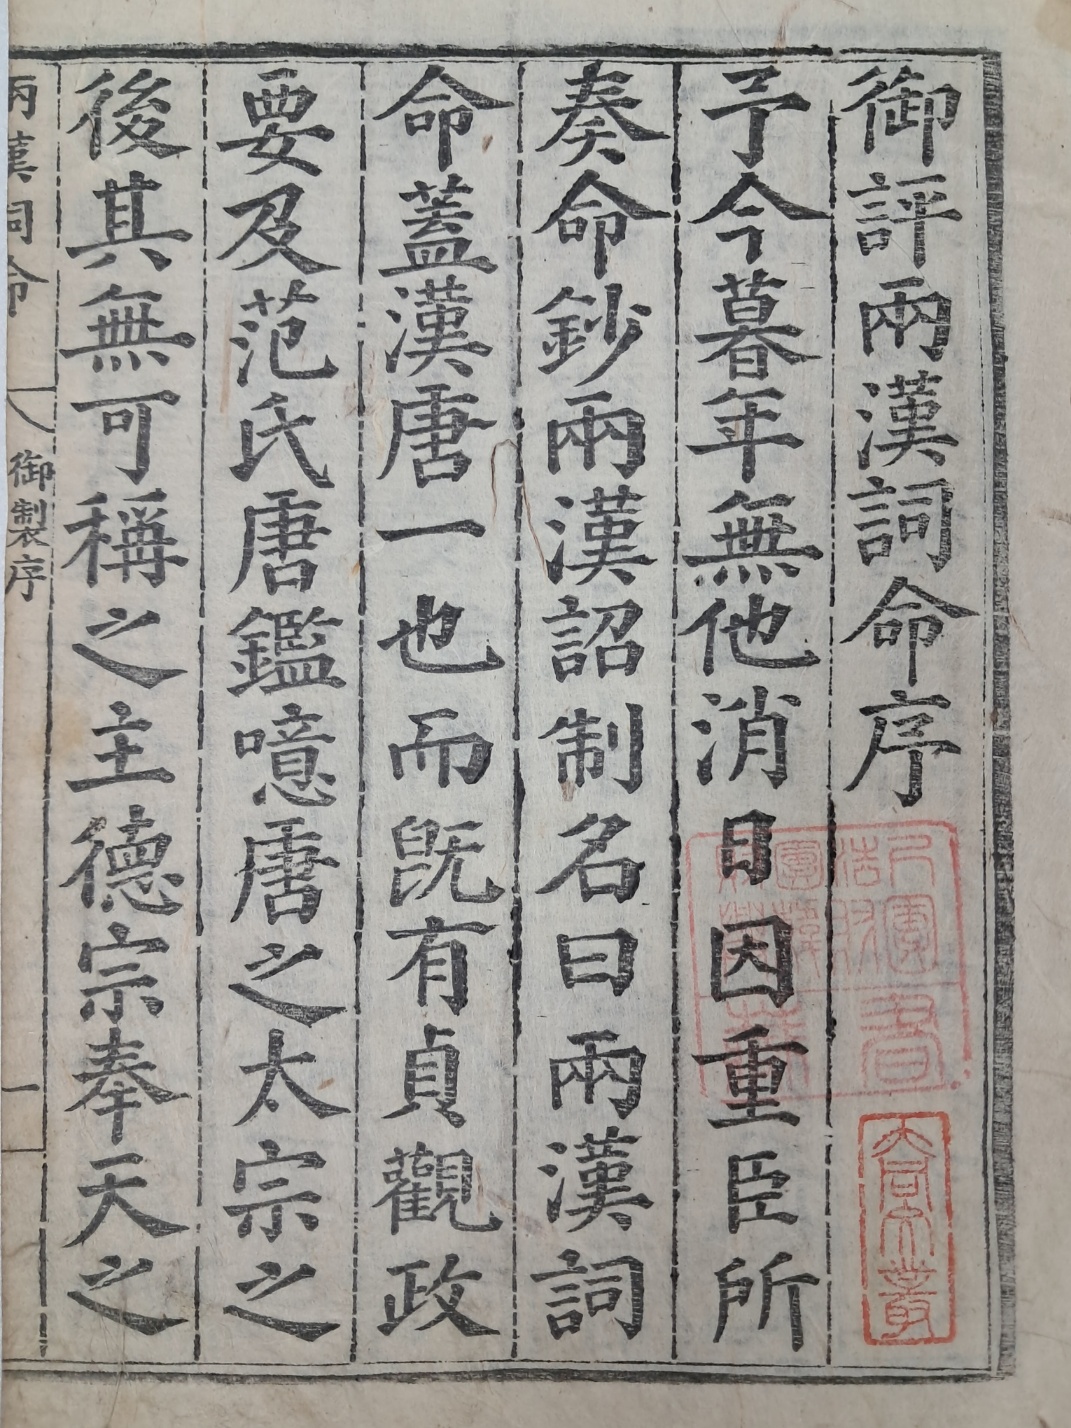 御評兩漢詞命序
予今暮年無他消日因重臣所
奏命鈔兩漢詔制名曰兩漢詞
命蓋漢唐一也而旣有貞觀政
要及范氏唐鑑噫唐之太宗之
後其無可稱之主德宗奉天之
兩漢詞命
御製序
一